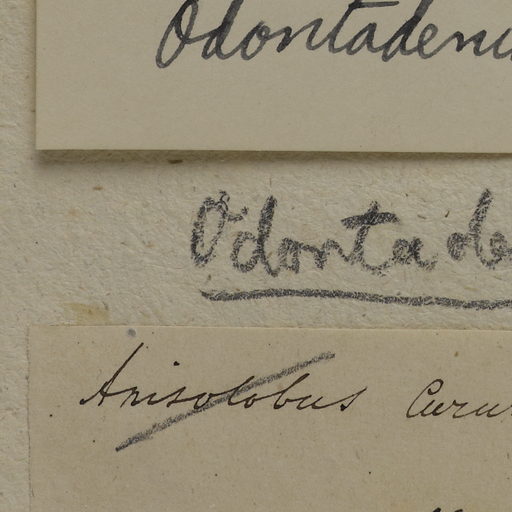 Odontadeni
Odontade
Anisolobus Curu